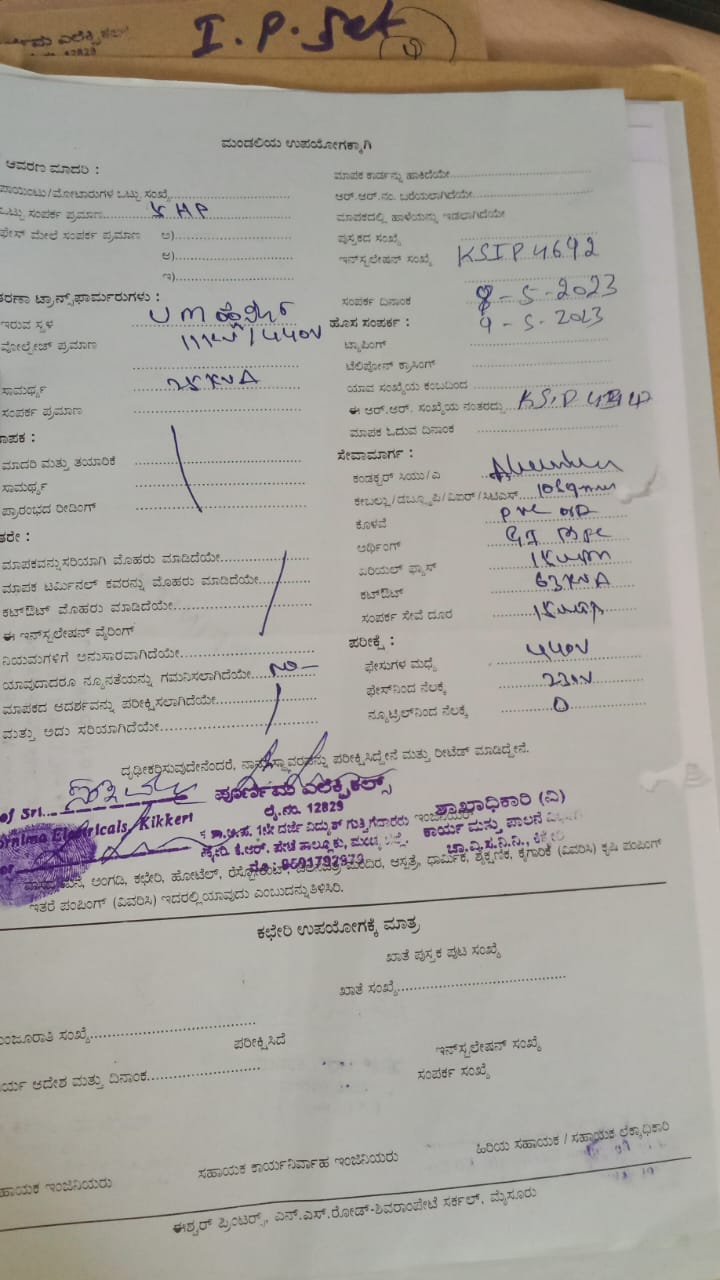 I.P. Set
ಮಂಡಲಿಯ ಉಪಯೋಗಕ್ಕಾಗಿ
ಆವರಣ ಮಾದರಿ :
ಪಾಯಿಂಟು/ಮೋಟಾರುಗಳ ಒಟ್ಟು ಸಂಖ್ಯೆ
ಒಟ್ಟು ಸಂಪರ್ಕ ಪ್ರಮಾಣ 5 HP
ಫೇಸ್ ಮೇಲೆ ಸಂಪರ್ಕ ಪ್ರಮಾಣ ಅ)
ಆ)
ಇ)
ತರಣಾ ಟ್ರಾನ್ಸ್‌ಫಾರ್ಮರುಗಳು :
ಇರುವ ಸ್ಥಳ
ವೋಲ್ಟೇಜ್ ಪ್ರಮಾಣ 11KV/440V
ಸಾಮರ್ಥ್ಯ 25KVA
ಸಂಪರ್ಕ ಪ್ರಮಾಣ
ಮಾಪಕ :
ಮಾದರಿ ಮತ್ತು ತಯಾರಿಕೆ
ಸಾಮರ್ಥ್ಯ
ಪ್ರಾರಂಭದ ರೀಡಿಂಗ್
ಇತರೇ :
ಮಾಪಕವನ್ನು ಸರಿಯಾಗಿ ಮೊಹರು ಮಾಡಿದೆಯೇ
ಮಾಪಕ ಟರ್ಮಿನಲ್ ಕವರನ್ನು ಮೊಹರು ಮಾಡಿದೆಯೇ
ಕಟ್‌ಔಟ್ ಮೊಹರು ಮಾಡಿದೆಯೇ
ಈ ಇನ್‌ಸ್ಟಲೇಷನ್ ವೈರಿಂಗ್
ನಿಯಮಗಳಿಗೆ ಅನುಸಾರವಾಗಿದೆಯೇ
ಯಾವುದಾದರೂ ನ್ಯೂನತೆಯನ್ನು ಗಮನಿಸಲಾಗಿದೆಯೇ No
ಮಾಪಕದ ಆದರ್ಶವನ್ನು ಪರೀಕ್ಷಿಸಲಾಗಿದೆಯೇ
ಮತ್ತು ಅದು ಸರಿಯಾಗಿದೆಯೇ
ಮಾಪಕ ಕಾರ್ಡನ್ನು ಹಾಕಿದೆಯೇ
ಆರ್.ಆರ್.ನಂ. ಬರೆಯಲಾಗಿದೆಯೇ
ಮಾಪಕದಲ್ಲಿ ಹಾಳೆಯನ್ನು ಇಡಲಾಗಿದೆಯೇ
ಪುಸ್ತಕದ ಸಂಖ್ಯೆ
ಇನ್‌ಸ್ಟಲೇಷನ್ ಸಂಖ್ಯೆ KSIP 4692
ಸಂಪರ್ಕ ದಿನಾಂಕ 8-5-2023
ಹೊಸ ಸಂಪರ್ಕ : 9-5-2023
ಟ್ಯಾಪಿಂಗ್
ಟೆಲಿಫೋನ್ ಕ್ರಾಸಿಂಗ್
ಯಾವ ಸಂಖ್ಯೆಯ ಕಂಬದಿಂದ
ಈ ಆರ್.ಆರ್. ಸಂಖ್ಯೆಯ ನಂತರದ್ದು KSIP
ಮಾಪಕ ಓದುವ ದಿನಾಂಕ
ಸೇವಾಮಾರ್ಗ :
ಕಂಡಕ್ಟರ್ ಸಿಯು/ಎ
ಕೇಬಲ್ಲು/ಡಬ್ಲ್ಯೂಪಿ/ವಿಐಆರ್/ಸಿಟಿಎಸ್ 10sqmm
ಕೊಳವೆ PVC
ಅರ್ಥಿಂಗ್ GI Pipe
ಏರಿಯಲ್ ಫ್ಯೂಸ್
ಕಟ್‌ಔಟ್ 63 KVA
ಸಂಪರ್ಕ ಸೇವೆ ದೂರ
ಪರೀಕ್ಷೆ :
ಫೇಸುಗಳ ಮಧ್ಯೆ 440V
ಫೇಸ್‌ನಿಂದ ನೆಲಕ್ಕೆ 230V
ನ್ಯೂಟ್ರಲ್‌ನಿಂದ ನೆಲಕ್ಕೆ 0
ದೃಢೀಕರಿಸುವುದೇನೆಂದರೆ, ನಾನು ಸ್ಥಾವರವನ್ನು ಪರೀಕ್ಷಿಸಿದ್ದೇನೆ ಮತ್ತು ರೀಟೆಡ್ ಮಾಡಿದ್ದೇನೆ.
of Sri.
Poornima Electricals, Kikkeri
ಪೂರ್ಣಿಮ ಎಲೆಕ್ಟ್ರಿಕಲ್ಸ್
ಲೈ.ನಂ. 12829
1ನೇ ದರ್ಜೆ ವಿದ್ಯುತ್ ಗುತ್ತಿಗೆದಾರರು
ಕೆ.ಆರ್. ಪೇಟೆ ತಾಲ್ಲೂಕು, ಮಂಡ್ಯ ಜಿಲ್ಲೆ.
ಶಾಖಾಧಿಕಾರಿ (ವಿ)
ಕಾರ್ಯ ಮತ್ತು ಪಾಲನೆ
ಚಾ.ವಿ.ಸ.ನಿ.ನಿ., ಕಿಕ್ಕೇರಿ
ಅಂಗಡಿ, ಕಛೇರಿ, ಹೋಟೆಲ್, ರೆಸ್ಟೋರೆಂಟ್, ಆಸ್ಪತ್ರೆ, ಧಾರ್ಮಿಕ, ಶೈಕ್ಷಣಿಕ, ಕೈಗಾರಿಕೆ (ವಿವರಿಸಿ) ಕೃಷಿ ಪಂಪಿಂಗ್
ಇತರೆ ಪಂಪಿಂಗ್ (ವಿವರಿಸಿ) ಇದರಲ್ಲಿ ಯಾವುದು ಎಂಬುದನ್ನು ತಿಳಿಸಿರಿ.
ಕಛೇರಿ ಉಪಯೋಗಕ್ಕೆ ಮಾತ್ರ
ಖಾತೆ ಪುಸ್ತಕ ಪುಟ ಸಂಖ್ಯೆ
ಖಾತೆ ಸಂಖ್ಯೆ
ಮಂಜೂರಾತಿ ಸಂಖ್ಯೆ
ಪರೀಕ್ಷಿಸಿದೆ
ಇನ್‌ಸ್ಟಲೇಷನ್ ಸಂಖ್ಯೆ
ಕಾರ್ಯ ಆದೇಶ ಮತ್ತು ದಿನಾಂಕ
ಸಂಪರ್ಕ ಸಂಖ್ಯೆ
ಸಹಾಯಕ ಇಂಜಿನಿಯರು
ಸಹಾಯಕ ಕಾರ್ಯನಿರ್ವಾಹ ಇಂಜಿನಿಯರು
ಹಿರಿಯ ಸಹಾಯಕ / ಸಹಾಯಕ ಲೆಕ್ಕಾಧಿಕಾರಿ
ಈಶ್ವರ್ ಪ್ರಿಂಟರ್ಸ್, ಎನ್.ಎಸ್.ರೋಡ್-ಶಿವರಾಂಪೇಟೆ ಸರ್ಕಲ್, ಮೈಸೂರು